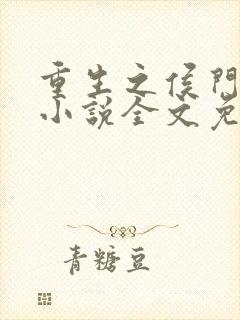 重生之侯门
小说全文免
青糖豆